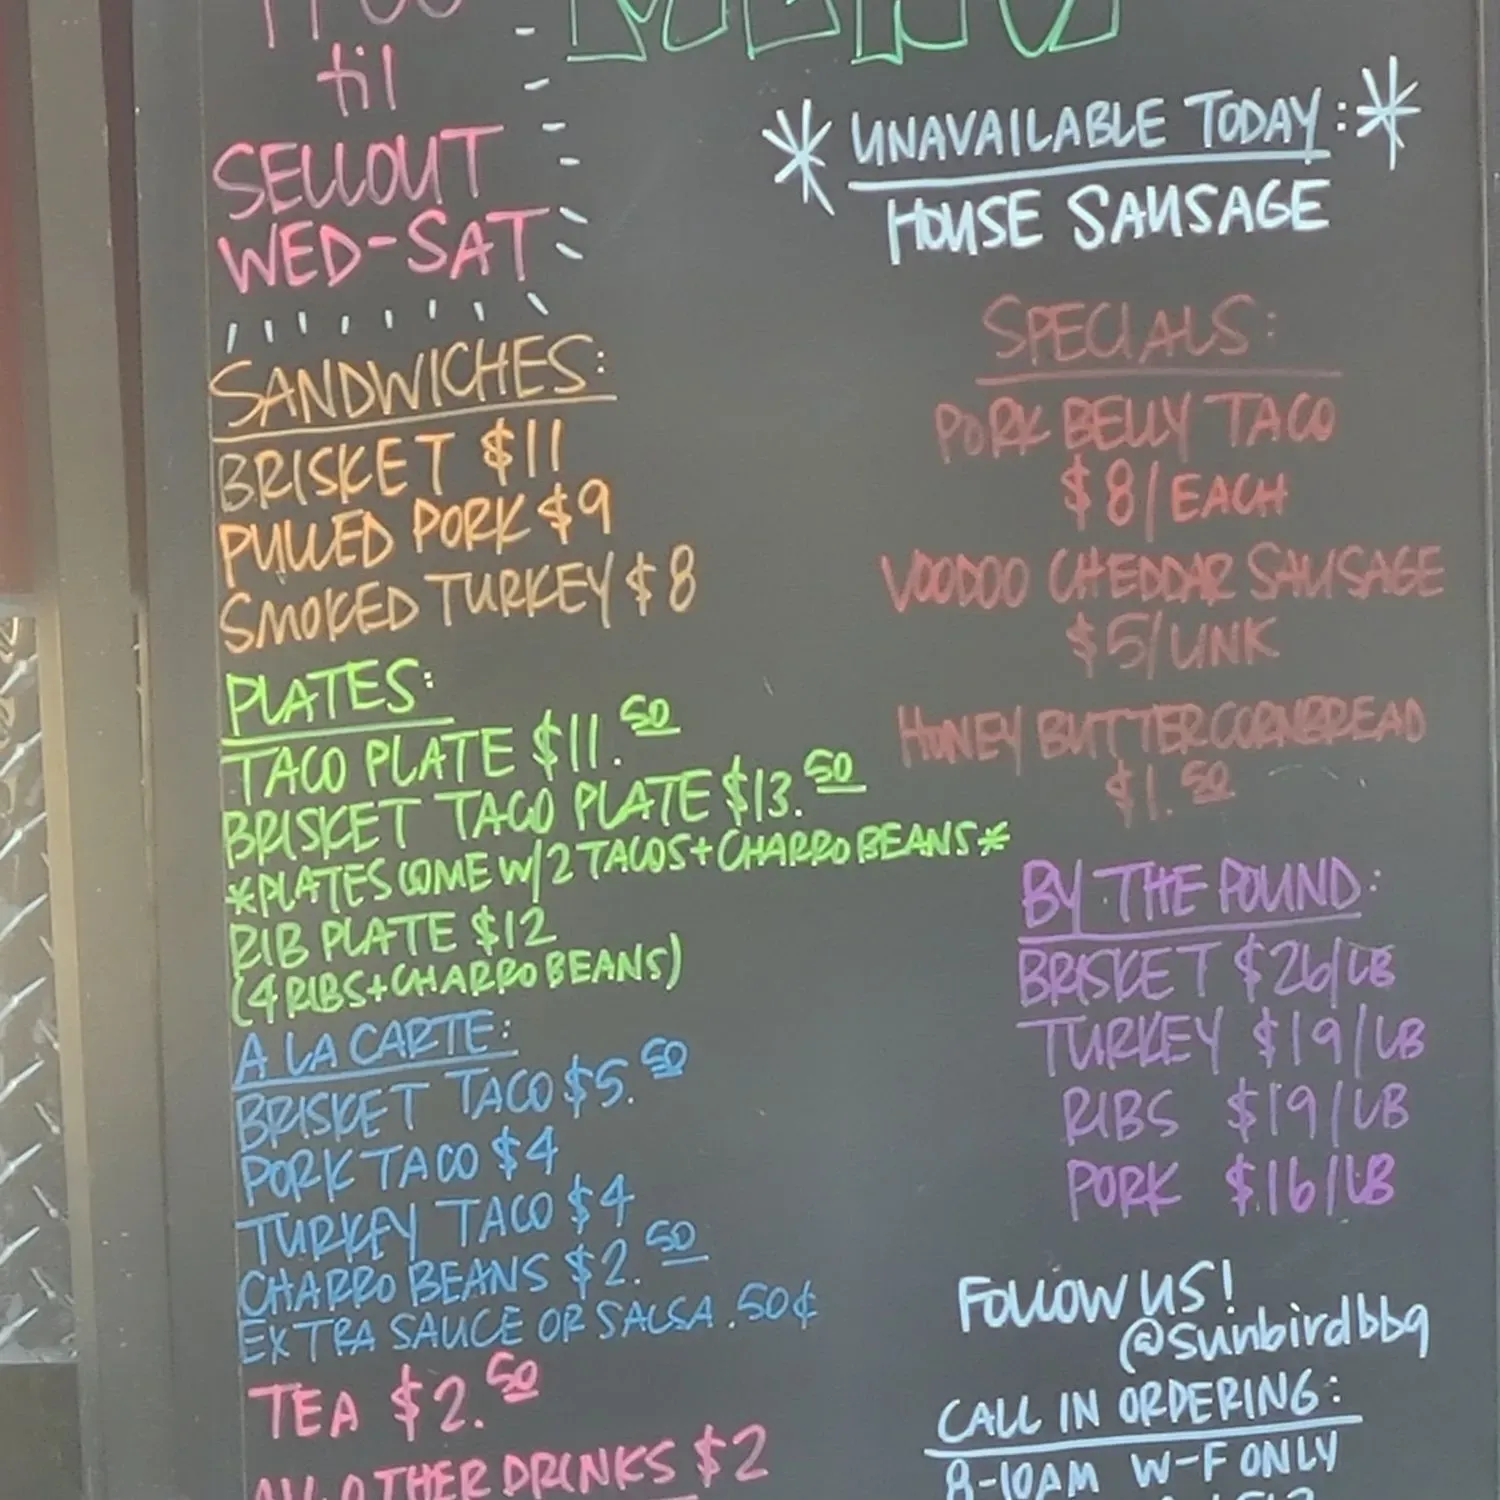 til
SELLOUT
WED-SAT
SANDWICHES:
BRISKET $11
PULLED PORK $9
SMOKED TURKEY $8
PLATES:
TACO PLATE $11.50
BRISKET TACO PLATE $13.50
*PLATES COME W/ 2 TACOS + CHARRO BEANS*
RIB PLATE $12
(4 RIBS + CHARRO BEANS)
A LA CARTE:
BRISKET TACO $5.50
PORK TACO $4
TURKEY TACO $4
CHARRO BEANS $2.50
EXTRA SAUCE OR SALSA .50¢
TEA $2.50
ALL OTHER DRINKS $2
MENU
* UNAVAILABLE TODAY: *
HOUSE SAUSAGE
SPECIALS:
PORK BELLY TACO
$8/EACH
VOODOO CHEDDAR SAUSAGE
$5/LINK
HONEY BUTTER CORNBREAD
$1.50
BY THE POUND:
BRISKET $26/LB
TURKEY $19/LB
RIBS $19/LB
PORK $16/LB
FOLLOW US!
@sunbirdbbq
CALL IN ORDERING:
8-10AM W-F ONLY